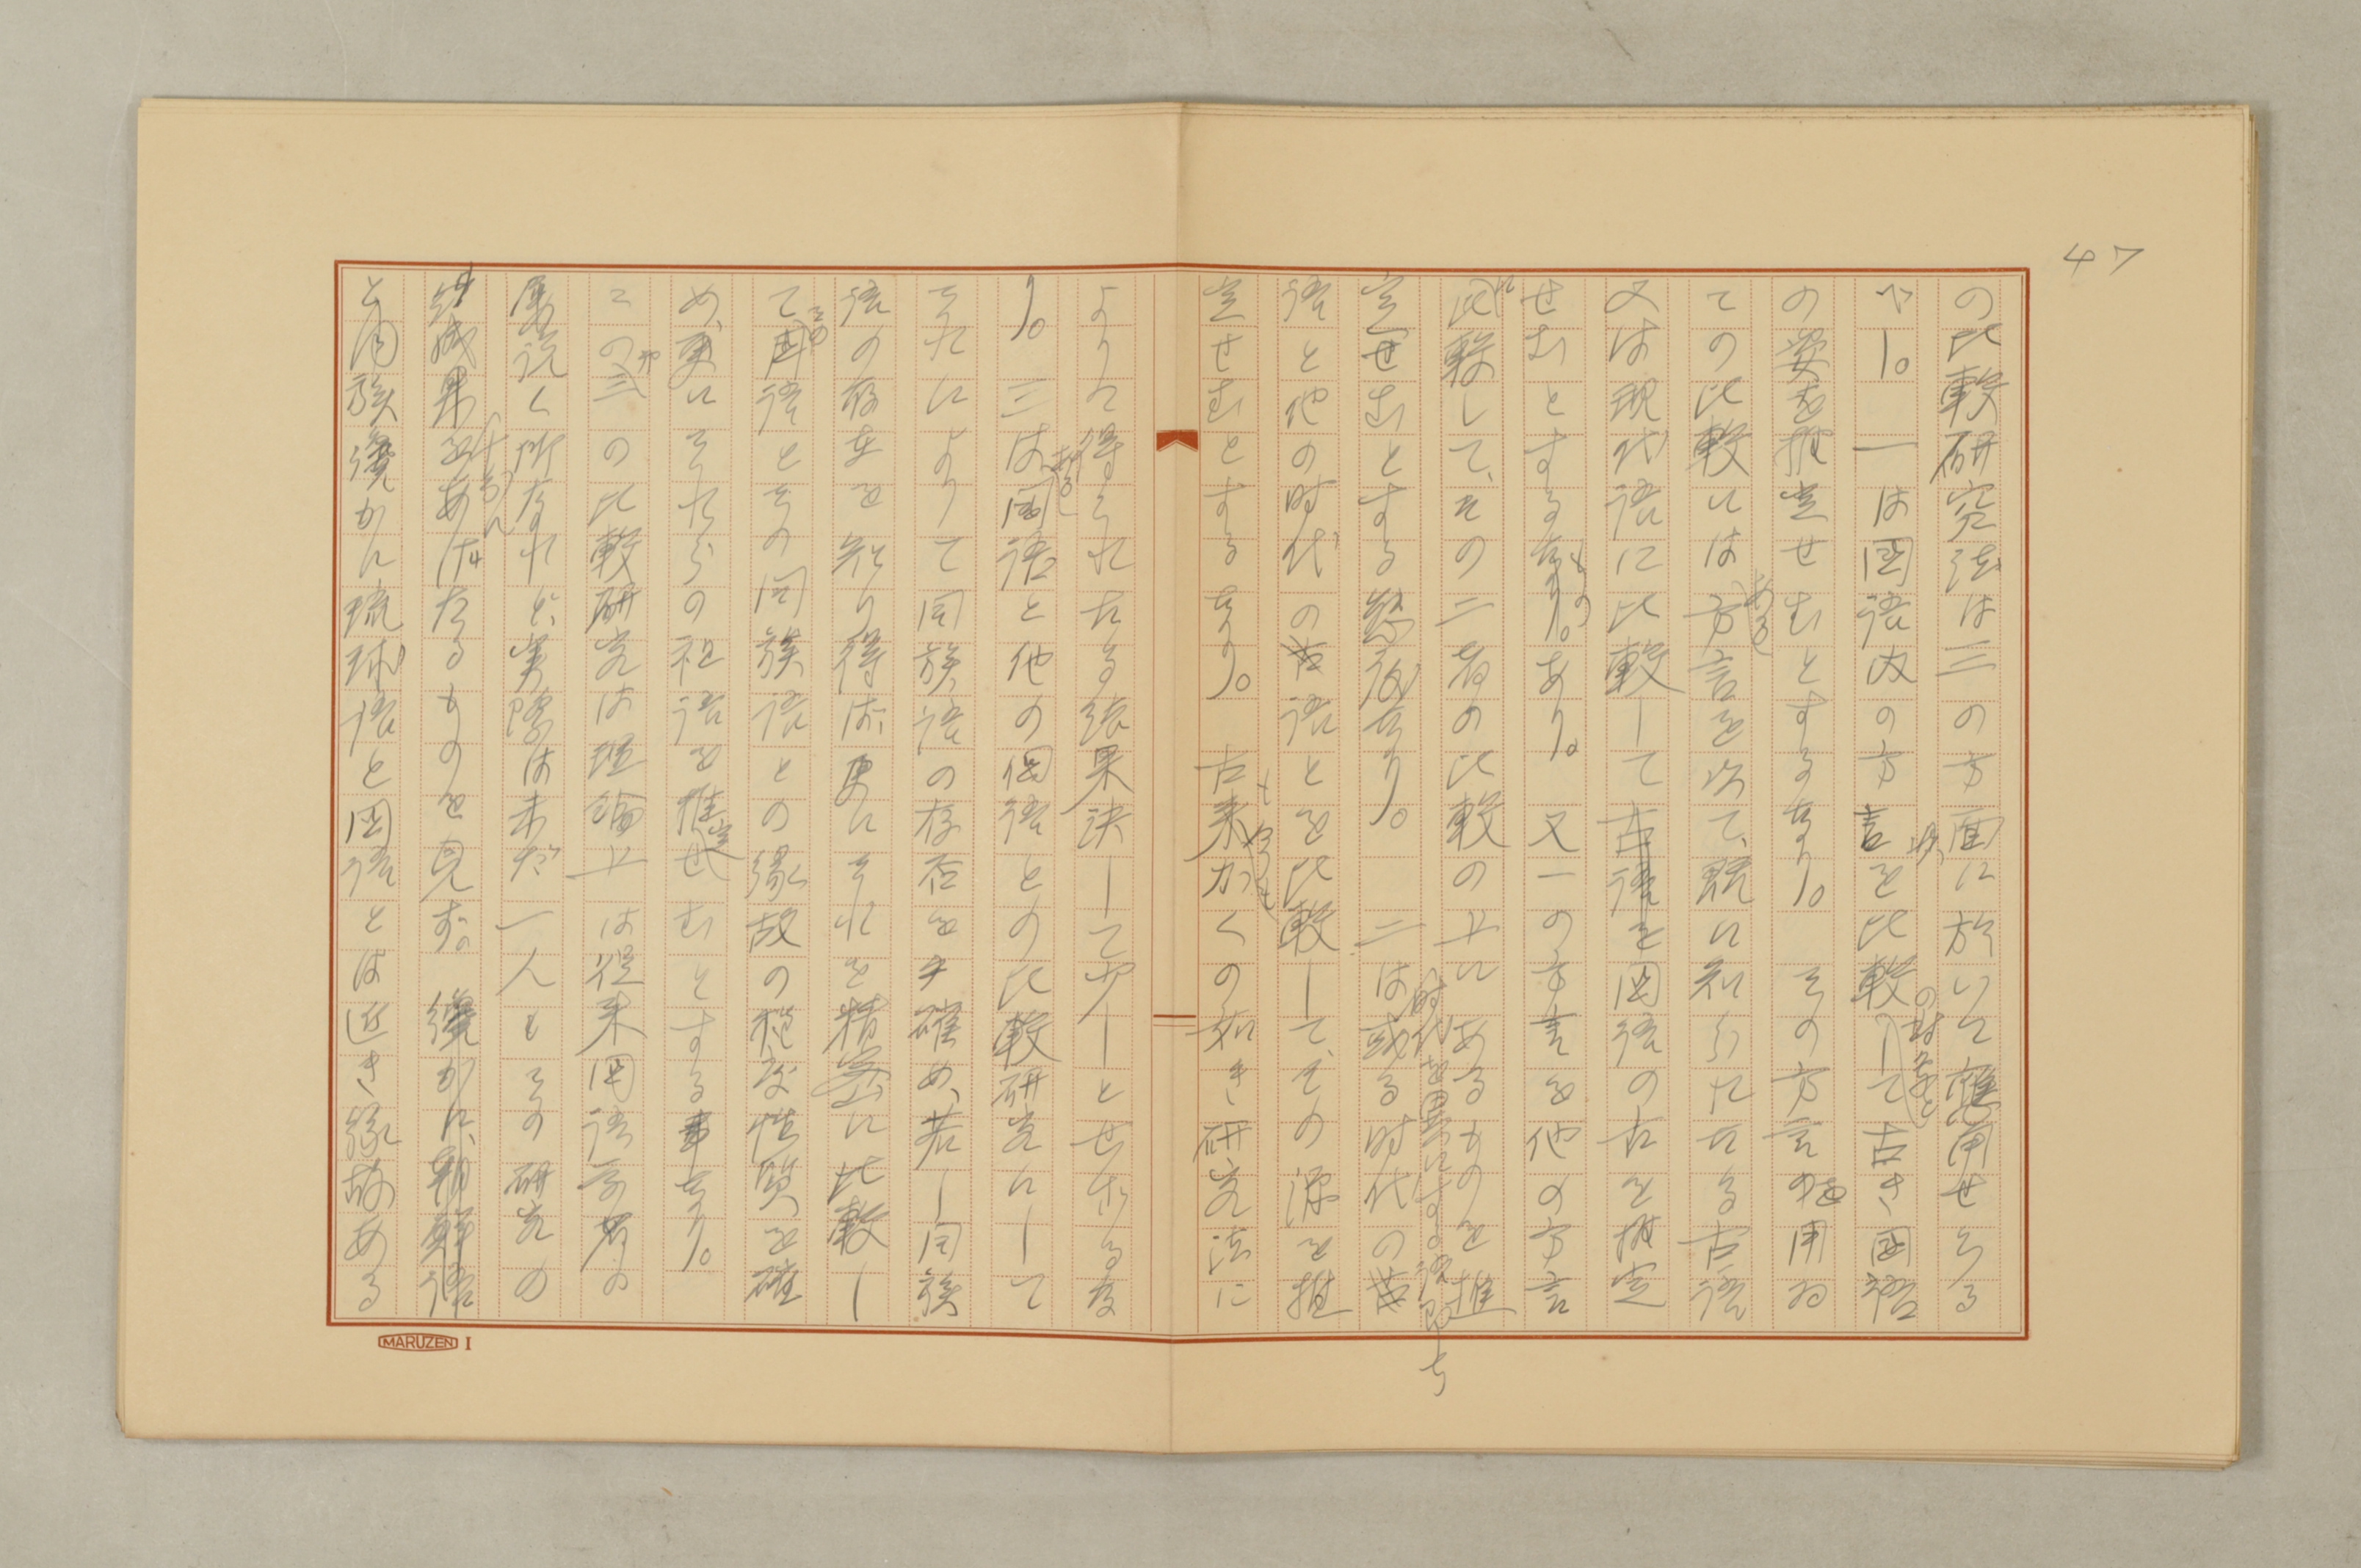 47
の比較研究法は三の方面に於いて應用せらる
べし。一は国語内の方言を比較して古き国語
の対をなと
の姿を推定せむとするなり。その方言を用ゐ
ての比較には方言を以て、既に知られたる古語
ある
又は現代語に比較して古語を国語の古を推定
せむとするもあり。又一の方言を他の方言
もの
に比較して、その二者の比較の上にあるものを推
定せむとする なり。二は或る時代の
時代を異にする 即ち
語と他の時代の語とを比較して、その源を推
定せむとするなり。古来かくの如き研究法に
よりて得られたる結果決して少しとせざるな
り。三は国語と他の国語との比較研究にして
或るひ
それによりて同族語の存否を確め、若し同族
語の存在を知り得ば、更にそれを精密に比較し
て国語とその同族語との縁故の程度性質を確
この
め、更にそれらの祖語を推定せむとする事なり。
この第三の比較研究は理論上は従来国語学者の
屢説く所なれど、実際は未だ一人もその研究の
成果をあげたるものを見ず。纔かに朝鮮語
十分に
と同族纔かに琉球語と国語とは近き縁故ある
MARUZEN I